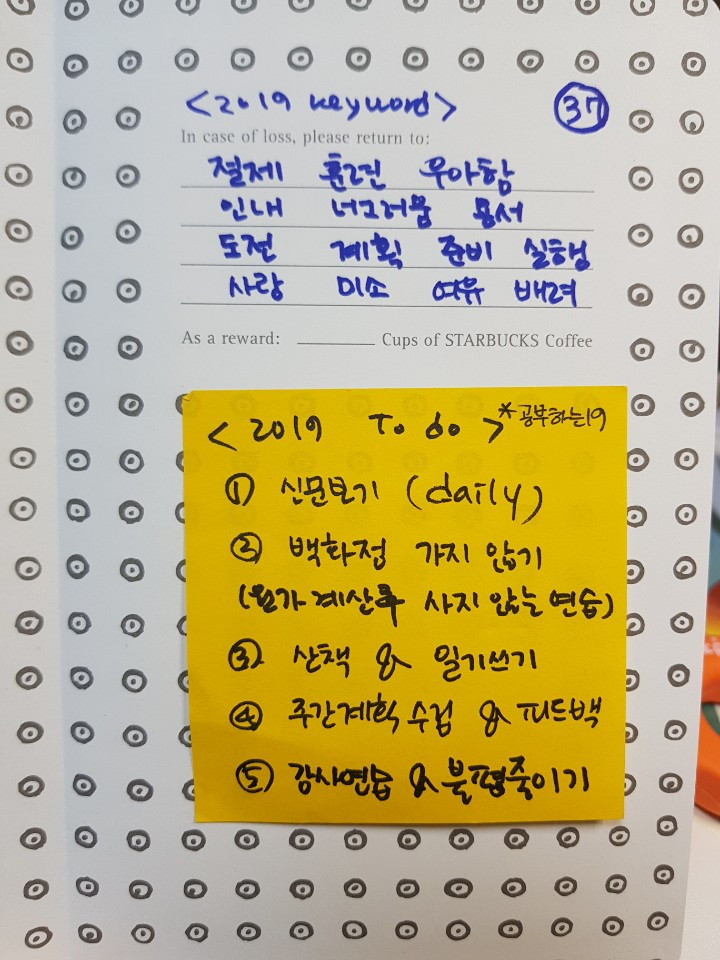 <2019 keyword> 37
In case of loss, please return to:
절제 훈련 우아함
인내 너그러움 용서
도전 계획 준비 실행
사랑 미소 여유 배려
As a reward: ________ Cups of STARBUCKS Coffee
<2019 To do> *공부하는19
① 신문보기 (daily)
② 백화정 가지 않기
(원가계산후 사지 않는 연습)
③ 산책 & 일기쓰기
④ 주간계획 수립 & 피드백
⑤ 감사연습 & 불평줄이기